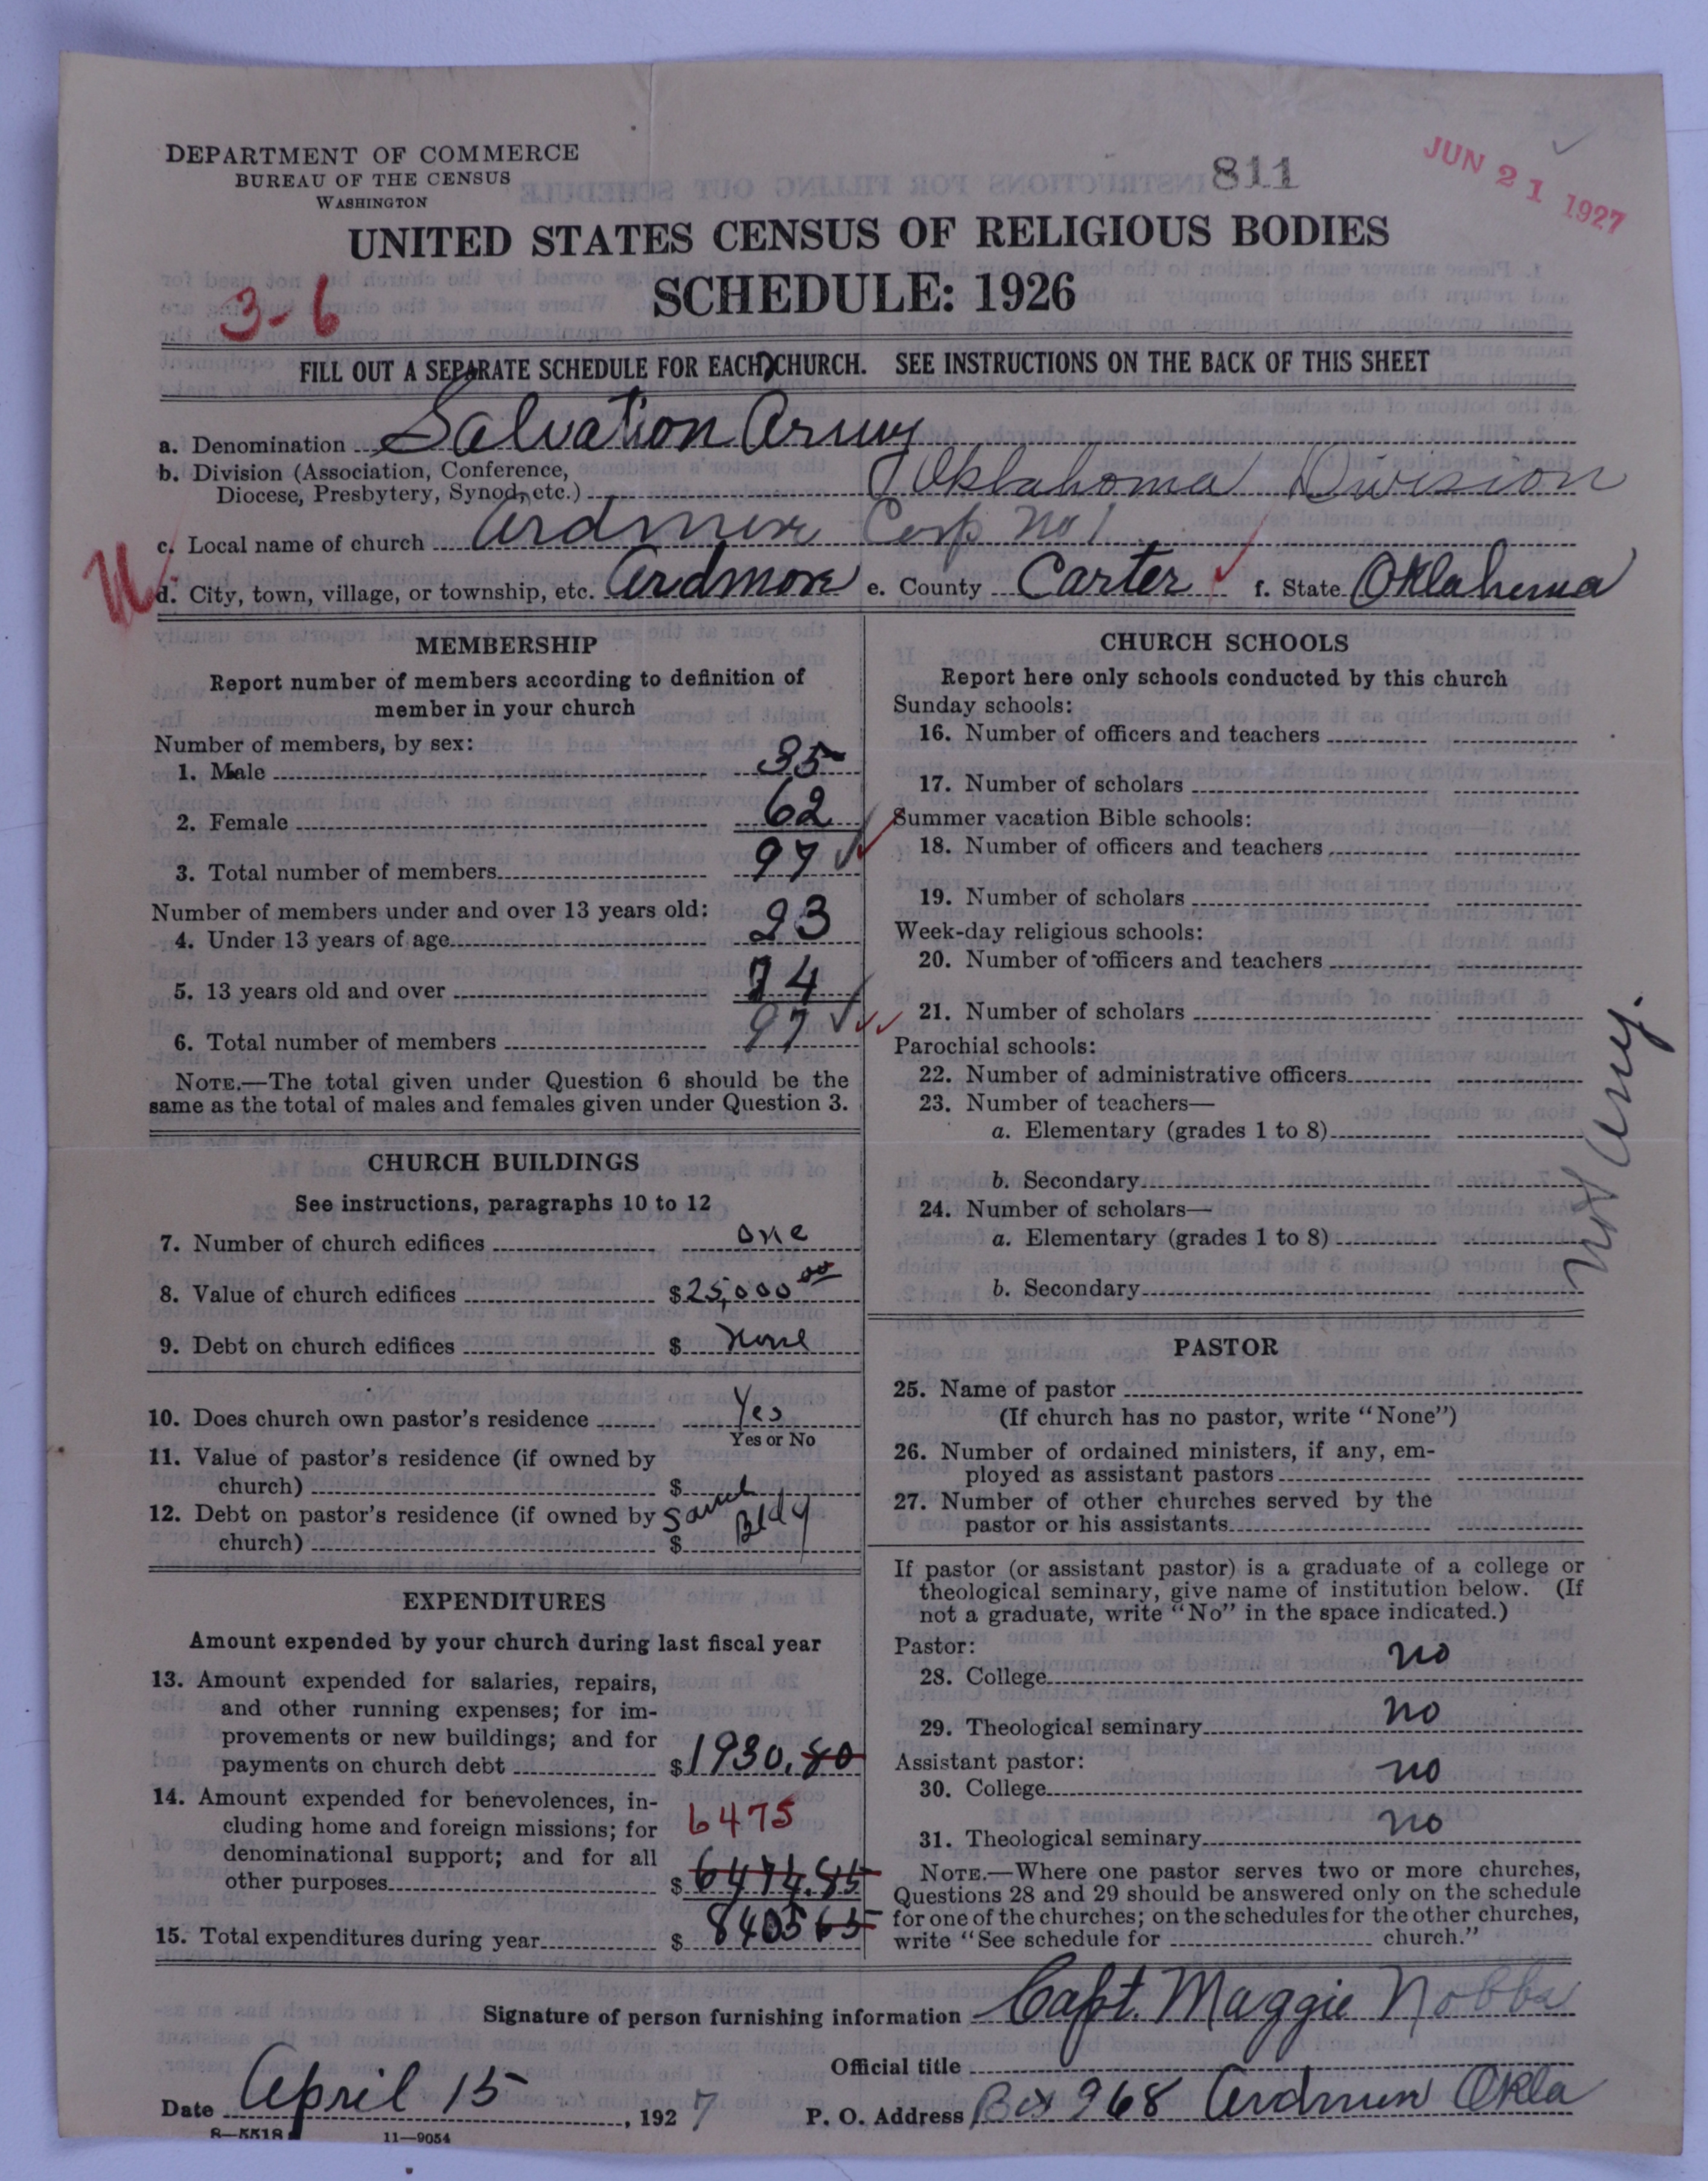 DEPARTMENT OF COMMERCE
BUREAU OF THE CENSUS
WASHINGTON
811
JUN 21 1927
UNITED STATES CENSUS OF RELIGIOUS BODIES
SCHEDULE: 1926
3-6
FILL OUT A SEPARATE SCHEDULE FOR EACH CHURCH. SEE INSTRUCTIONS ON THE BACK OF THIS SHEET
a. Denomination Salvation Army
b. Division (Association, Conference,
Diocese, Presbytery, Synod, etc.) Oklahoma Division
c. Local name of church Ardmore Corp No 1.
d. City, town, village, or township, etc. Ardmore e. County Carter f. State Oklahoma
MEMBERSHIP
Report number of members according to definition of
member in your church
Number of members, by sex:
1. Male 35
2. Female 62
3. Total number of members 97
Number of members under and over 13 years old:
4. Under 13 years of age 23
5. 13 years old and over 74
6. Total number of members 97
NOTE.—The total given under Question 6 should be the
same as the total of males and females given under Question 3.
CHURCH BUILDINGS
See instructions, paragraphs 10 to 12
7. Number of church edifices one
8. Value of church edifices $25,000 00
9. Debt on church edifices $ none
10. Does church own pastor's residence Yes
Yes or No
11. Value of pastor's residence (if owned by
church) $ Same
12. Debt on pastor's residence (if owned by
church) $ Bldg
EXPENDITURES
Amount expended by your church during last fiscal year
13. Amount expended for salaries, repairs,
and other running expenses; for im-
provements or new buildings; and for
payments on church debt $1930.80
14. Amount expended for benevolences, in-
cluding home and foreign missions; for 6475
denominational support; and for all
other purposes $6474.85
15. Total expenditures during year $ 8405 65
CHURCH SCHOOLS
Report here only schools conducted by this church
Sunday schools:
16. Number of officers and teachers
17. Number of scholars
Summer vacation Bible schools:
18. Number of officers and teachers
19. Number of scholars
Week-day religious schools:
20. Number of officers and teachers
21. Number of scholars
Parochial schools:
22. Number of administrative officers
23. Number of teachers—
a. Elementary (grades 1 to 8)
b. Secondary
24. Number of scholars—
a. Elementary (grades 1 to 8)
b. Secondary
Not Any.
PASTOR
25. Name of pastor
(If church has no pastor, write "None")
26. Number of ordained ministers, if any, em-
ployed as assistant pastors
27. Number of other churches served by the
pastor or his assistants
If pastor (or assistant pastor) is a graduate of a college or
theological seminary, give name of institution below. (If
not a graduate, write "No" in the space indicated.)
Pastor:
28. College no
29. Theological seminary no
Assistant pastor:
30. College no
31. Theological seminary no
NOTE.—Where one pastor serves two or more churches,
Questions 28 and 29 should be answered only on the schedule
for one of the churches; on the schedules for the other churches,
write "See schedule for church."
Signature of person furnishing information Capt. Maggie Nobbs
Official title
Date April 15, 1927
P. O. Address Box 968 Ardmore Okla
8—5518
11—9054